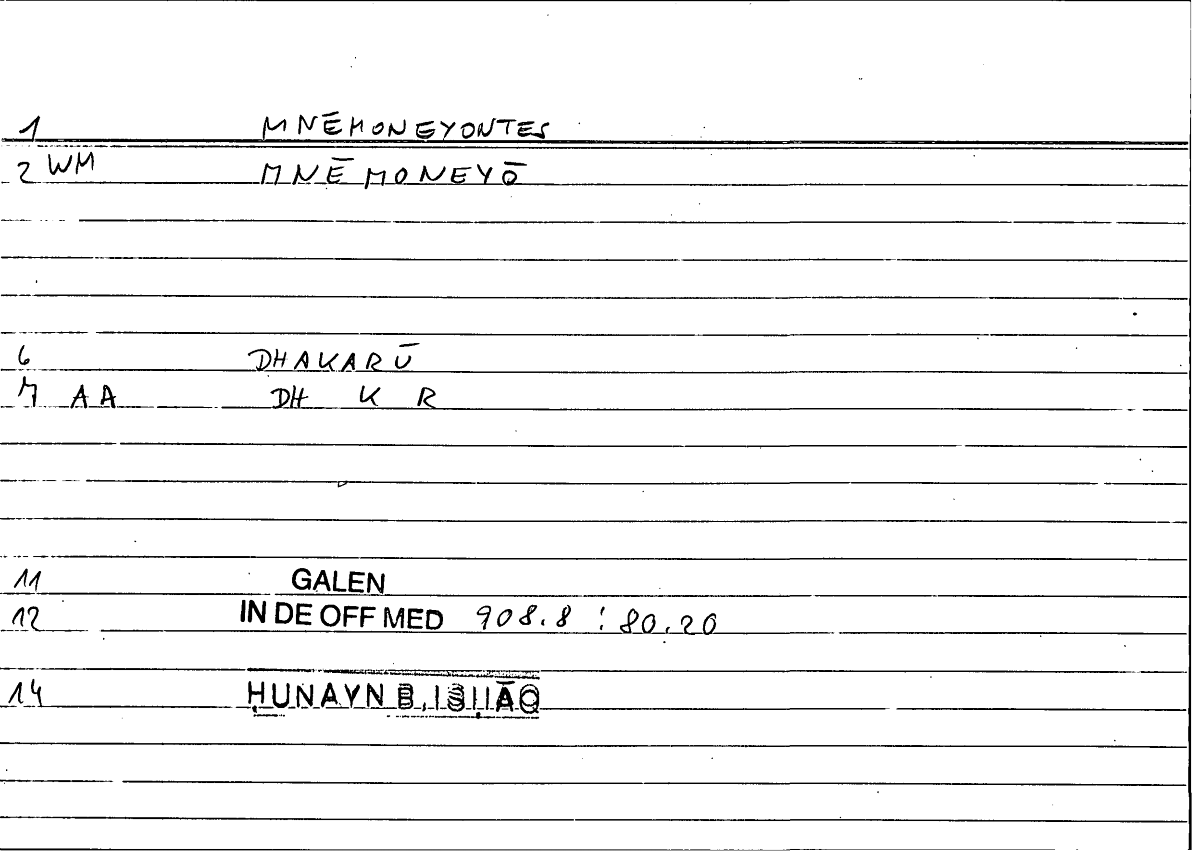 1 MNĒMONEYONTES
2 WM MNĒMONEYŌ
6 DHAKARŪ
7 AA DH K R
11 GALEN
12 IN DE OFF MED 908.8 : 80.20
14 ḤUNAYN B. ISḤĀQ